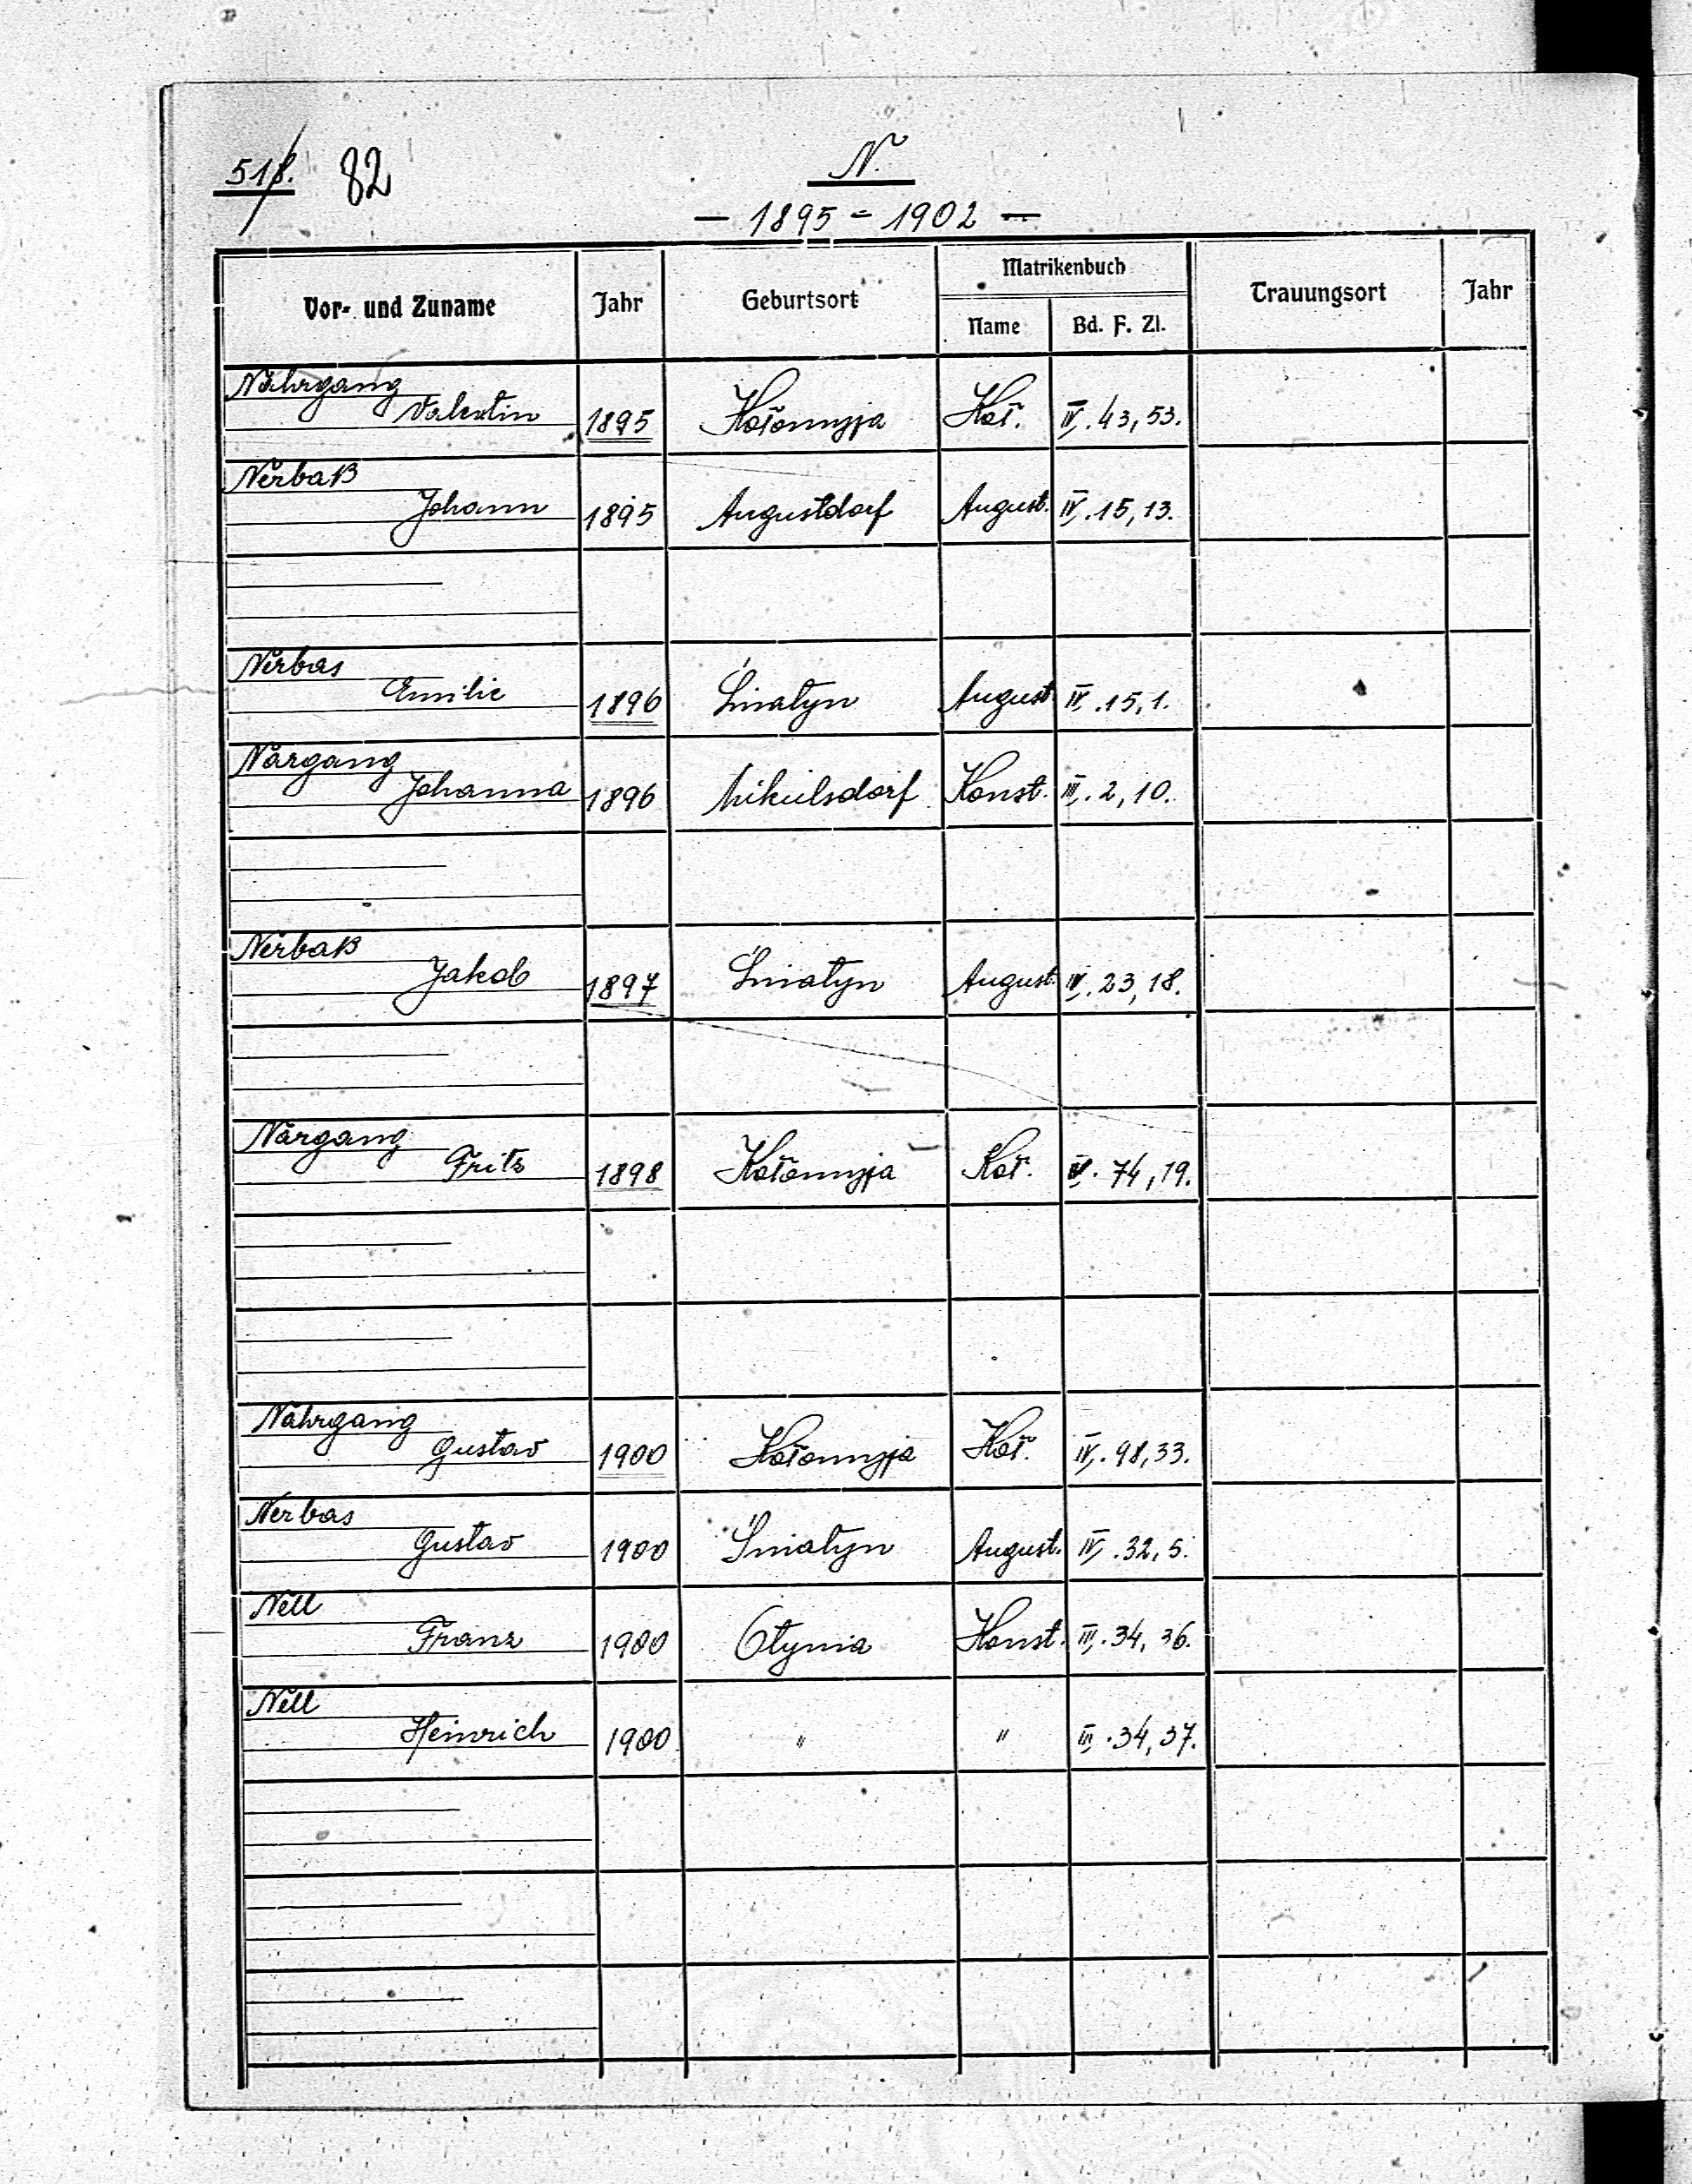 518. 82
N.
— 1895 = 1902 —
Vor- und Zuname Jahr Geburtsort Matrikenbuch Trauungsort Jahr
Name Bd. F. Zl.
Nährgang
Valentin 1895 Kołomyja Koł. IV. 43, 53.
Nerbaß
Johann 1895 Augustdorf August. IV. 15, 13.
Nerbas
Emilie 1896 Śniatyn August. IV. 15, 1.
Närgang
Johanna 1896 Mikulsdorf Konst. III. 2, 10.
Nerbaß
Jakob 1897 Śniatyn August. IV. 23, 18.
Närgang
Fritz 1898 Kołomyja Koł. IV. 74, 19.
Nährgang
Gustav 1900 Kołomyja Koł. IV. 98, 33.
Nerbas
Gustav 1900 Śniatyn August. IV. 32, 5.
Nell
Franz 1900 Otynia Konst. III. 34, 36.
Nell
Heinrich 1900 " " III. 34, 37.